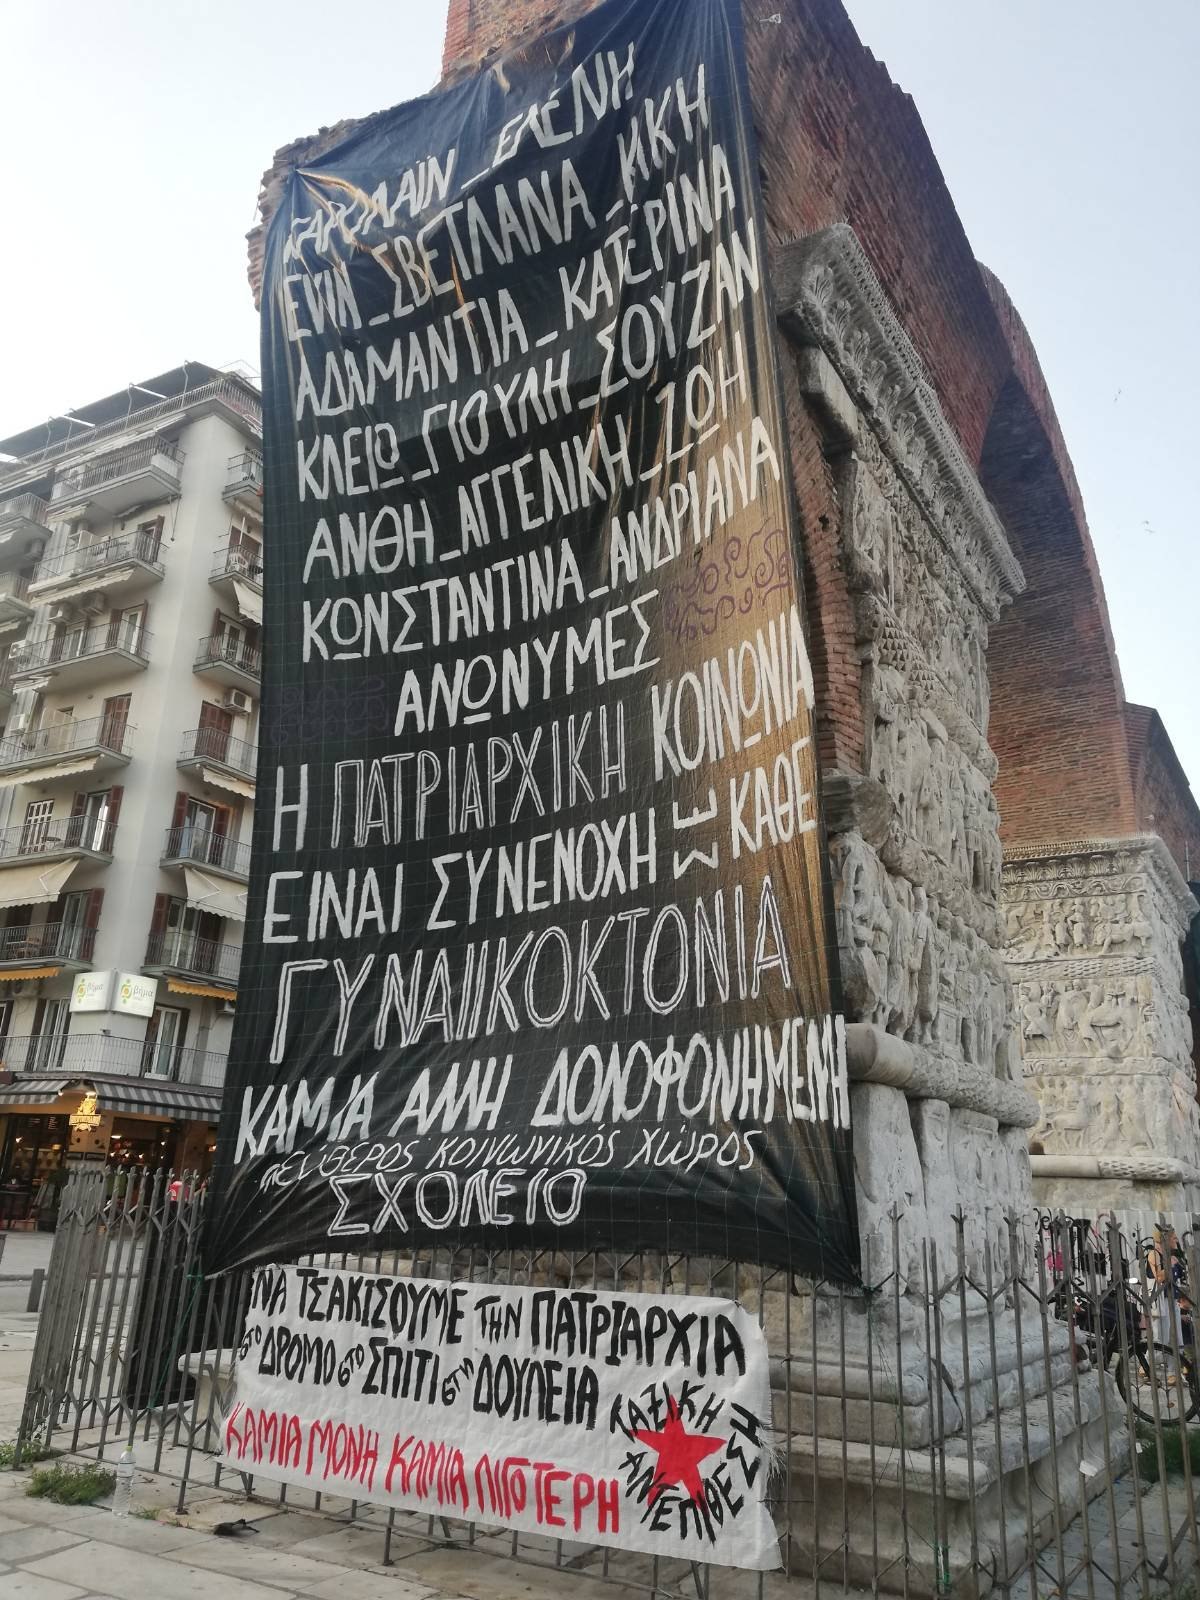 ΚΑΡΟΛΑΪΝ_ΕΛΕΝΗ
ΕΨΗ_ΣΒΕΤΛΑΝΑ_ΚΙΚΗ
ΑΔΑΜΑΝΤΙΑ_ΚΑΤΕΡΙΝΑ
ΚΛΕΙΩ_ΓΙΟΥΛΗ_ΣΟΥΖΑΝ
ΑΝΘΗ_ΑΓΓΕΛΙΚΗ_ΖΩΗ
ΚΩΝΣΤΑΝΤΙΝΑ_ΑΝΔΡΙΑΝΑ
ΑΝΩΝΥΜΕΣ
Η ΠΑΤΡΙΑΡΧΙΚΗ ΚΟΙΝΩΝΙΑ
ΕΙΝΑΙ ΣΥΝΕΝΟΧΗ ΣΕ ΚΑΘΕ
ΓΥΝΑΙΚΟΚΤΟΝΙΑ
ΚΑΜΙΑ ΑΛΛΗ ΔΟΛΟΦΟΝΗΜΕΝΗ
ελεύθερος κοινωνικός χώρος
ΣΧΟΛΕΙΟ
ΝΑ ΤΣΑΚΙΣΟΥΜΕ ΤΗΝ ΠΑΤΡΙΑΡΧΙΑ
στο ΔΡΟΜΟ στο ΣΠΙΤΙ στη ΔΟΥΛΕΙΑ
ΚΑΜΙΑ ΜΟΝΗ ΚΑΜΙΑ ΛΙΓΟΤΕΡΗ
ΤΑΞΙΚΗ
ΑΝΤΕΠΙΘΕΣΗ
βήμα
βήμα